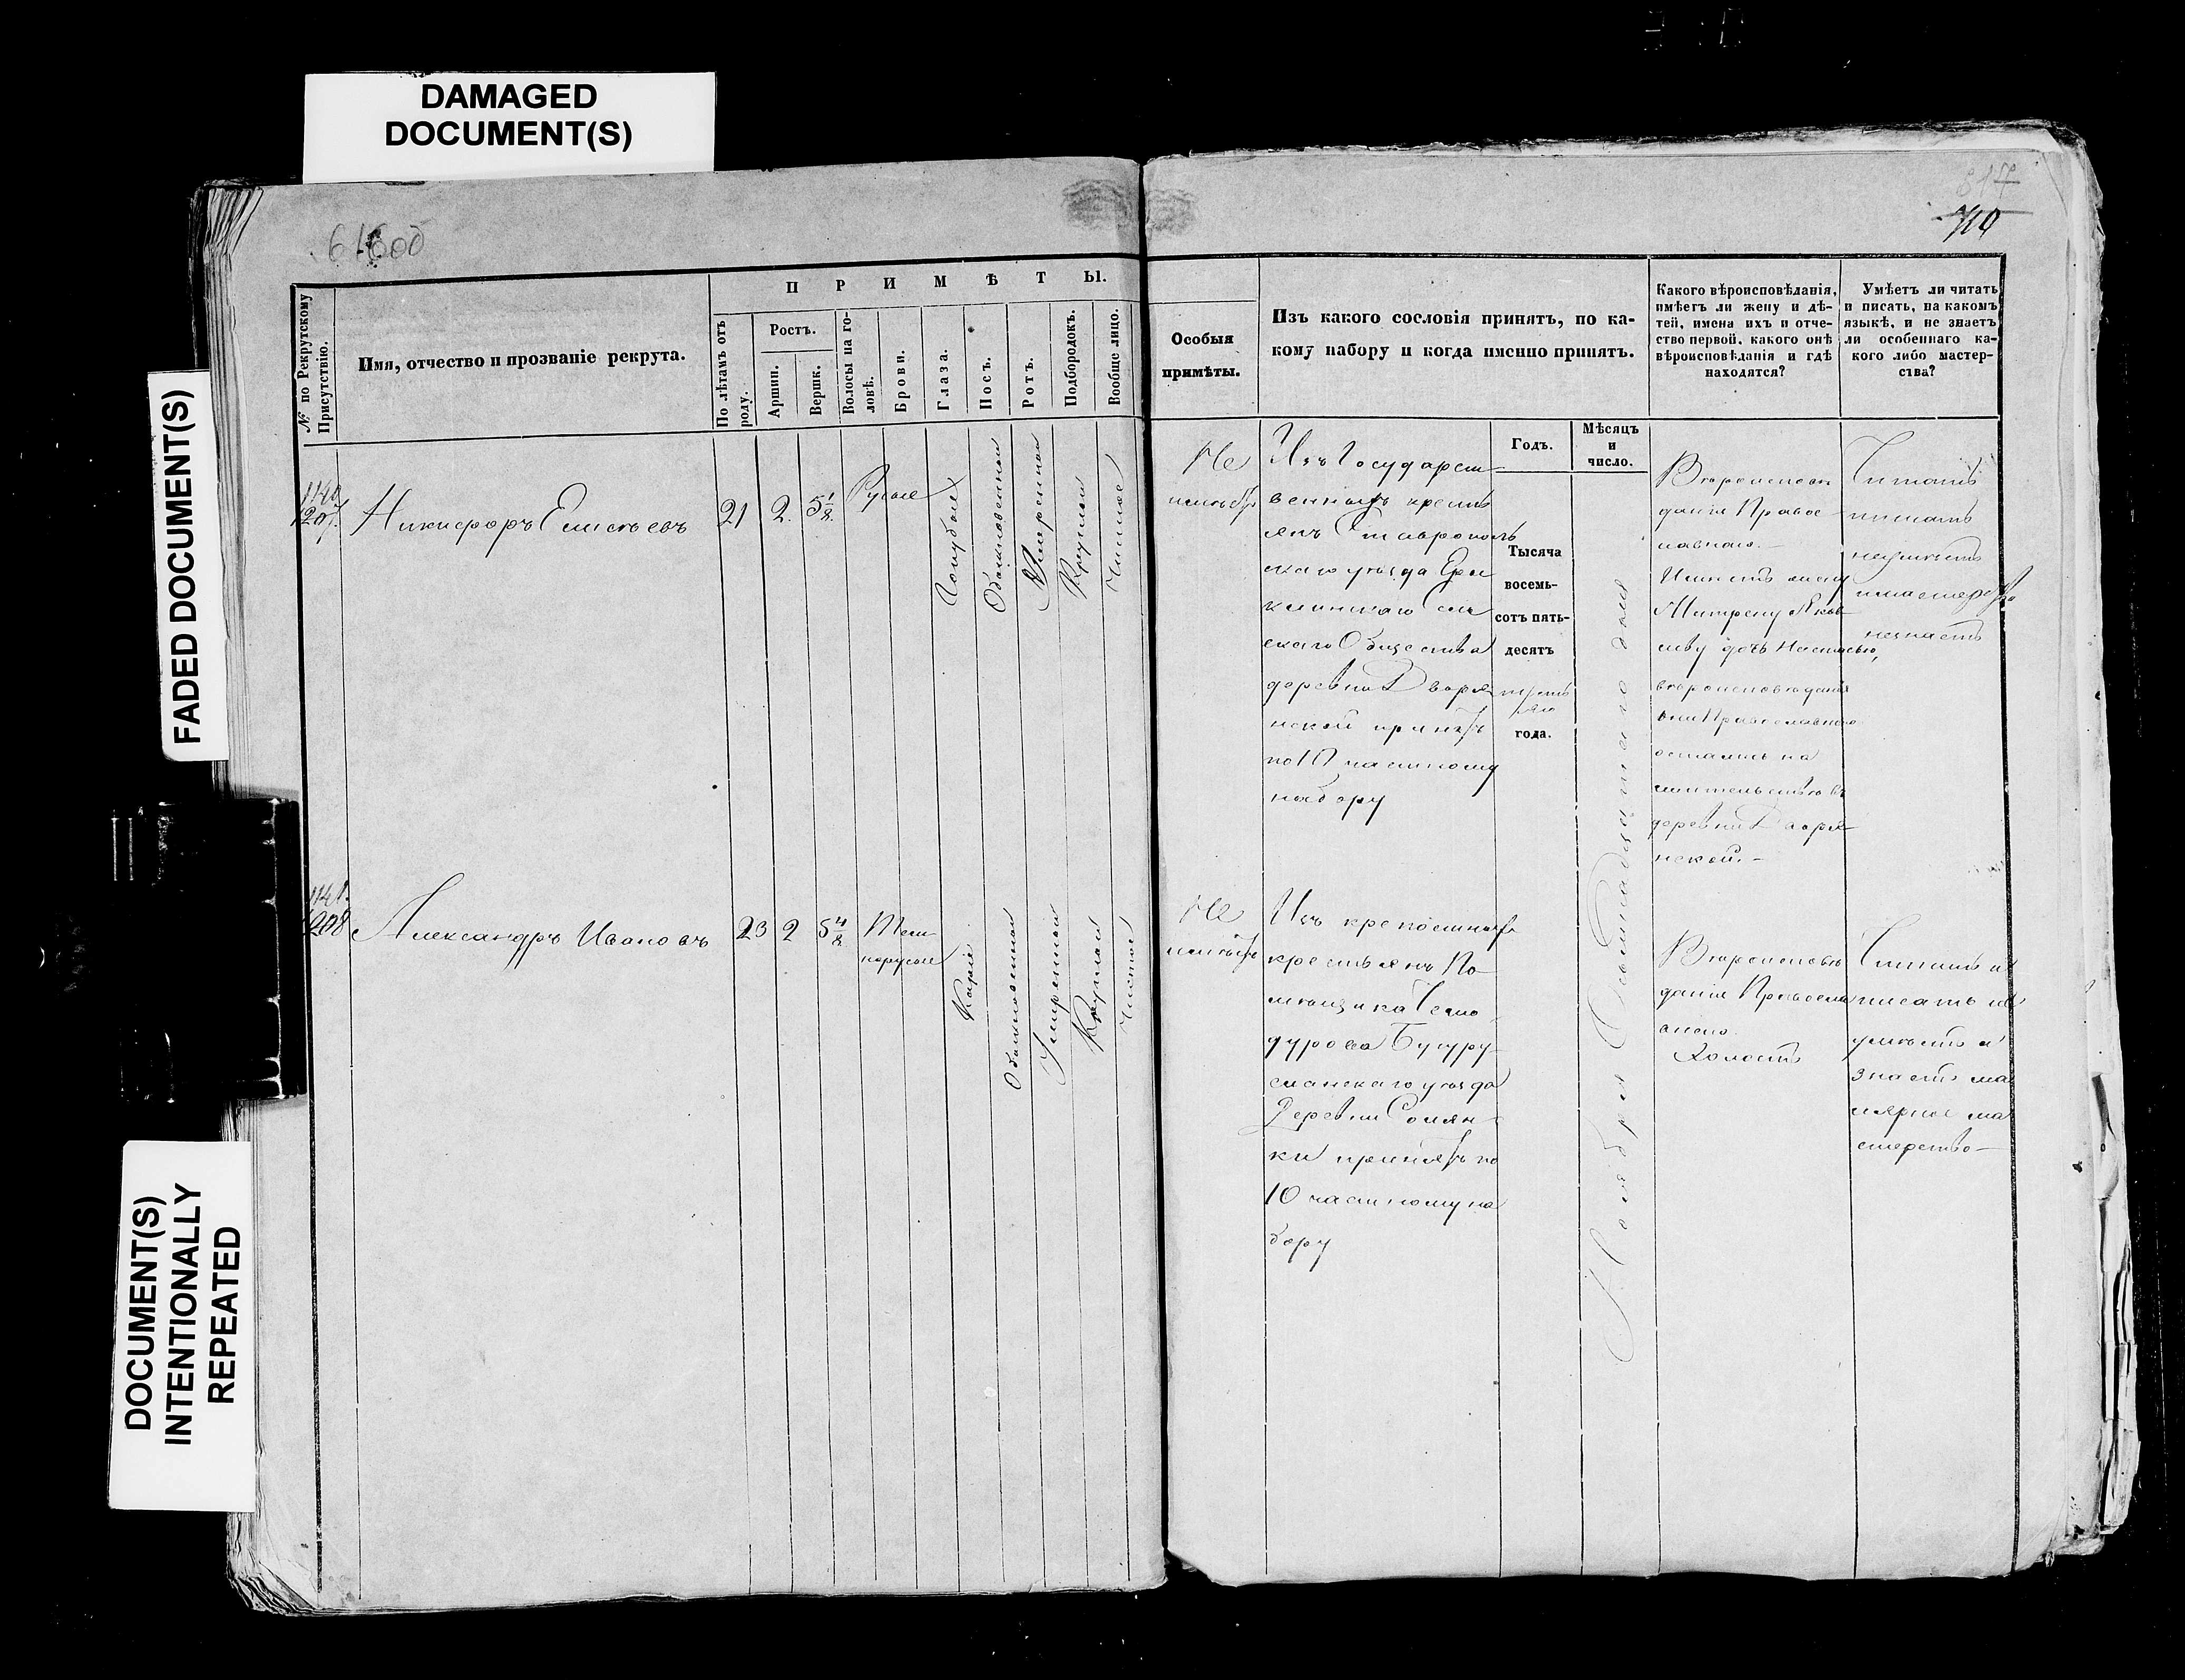 DAMAGED
DOCUMENT(S)
FADED DOCUMENT(S)
DOCUMENT(S)
INTENTIONALLY
REPEATED
710
№ по Рекрутскому
Присутствію.
Имя, отчество и прозваніе рекрута.
ПРИМѢТЫ.
По лѣтамъ отъ
роду.
Ростъ.
Аршин.
Вершк.
Волосы на го-
ловѣ.
Брови.
Глаза.
Носъ.
Ротъ.
Подбородокъ.
Вообще лицо.
Особыя
примѣты.
Изъ какого сословія принятъ, по ка-
кому набору и когда именно принятъ.
Какого вѣроисповѣданія,
имѣетъ ли жену и дѣ-
тей, имена ихъ и отче-
ство первой, какого онѣ
вѣроисповѣданія и гдѣ
находятся?
Умѣетъ ли читать
и писать, на какомъ
языкѣ, и не знаетъ
ли особеннаго ка-
кого либо мастер-
ства?
Годъ.
Мѣсяцъ
и
число.
1140
1207.
Никифоръ Елисѣевъ
21
2.
5 1/8.
Русые
Голубые
Обыкновенный
Умеренной
Круглой
Чистое
Не
имѣетъ
Изъ Государст-
венныхъ кресть
янъ Ставрополь
скаго уѣзда Ери
клинскаго Сель
скаго Общества
деревни Дворя
нской принятъ
по 10 частному
набору
Тысяча
восемь-
сотъ пять-
десятъ
года.
Ноября Осьмнадцатаго дня
Вѣроисповѣ
данія Правос
лавнаго.
Имѣетъ жену
Матрену Яков
леву дочь Настасью,
вѣроисповѣданія
они Православнаго
остались на
жительствѣ въ
деревни Дворя
нской.-
Читать
писать
неумѣетъ
и мастерства
незнаетъ
1141.
1208
Александръ Ивановъ
23
2
5 4/8
Темн
норусые
Каріе
Обыкновенной
Умеренной
Круглой
Чистое
Не
имѣетъ
Изъ крепостныхъ
крестьянъ По-
мѣщика
дурова Бугуру-
сланскаго уѣзда
Деревни Солян-
ки принятъ по
10 частному на
бору
Вѣроисповѣ
данія Правосла
внаго.
Холостъ
Читать и
писать
умѣетъ и
знаетъ ма
лярное ма
стерство-